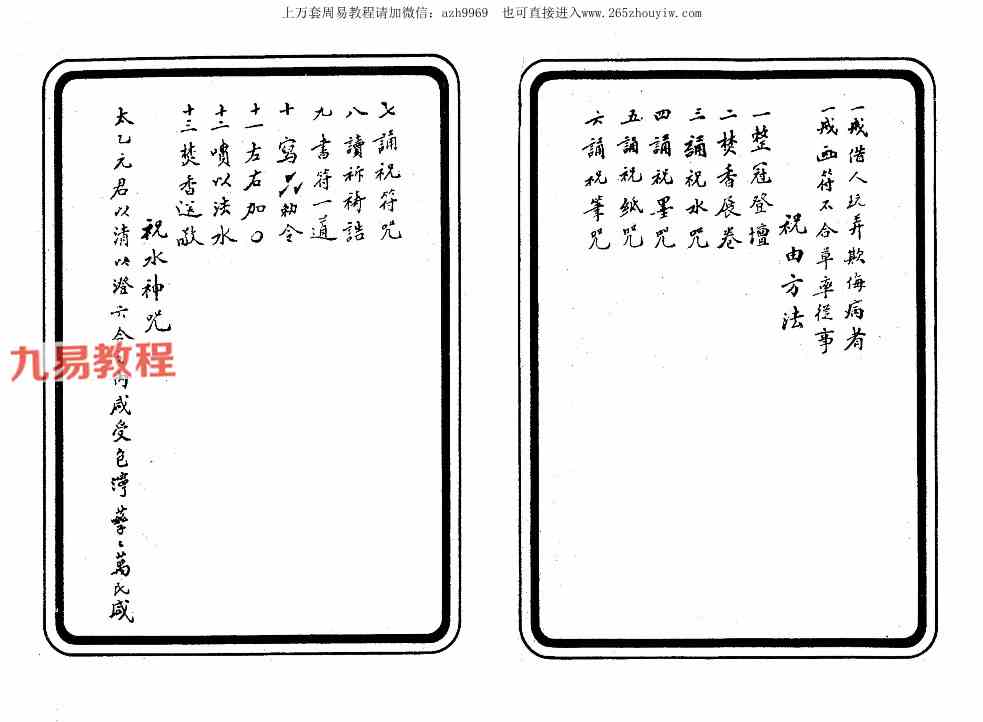 上万套周易教程请加微信：azh9969 也可直接进入www.265zhouyiw.com
一戒借人玩弄欺侮病者
一戒画符不合草率从事
祝由方法
一整冠登壇
二焚香展卷
三誦祝水咒
四誦祝墨咒
五誦祝紙咒
六誦祝筆咒
七誦祝符咒
八讀祈禱誥
九書符一道
十寫勅令
十一左右加〇
十二噴以法水
十三焚香送
祝水神咒
太乙元君以清以澄六合内咸受包渟萬民咸
九易教程